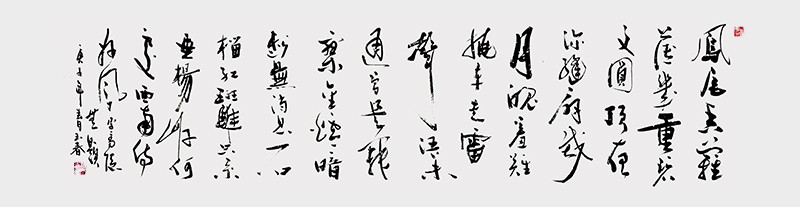 鳳尾香羅
薄幾重碧
文圓頂夜
深縫扇裁
月魄羞難
掩車走雷
聲語未
通曾是寂
寥金燼暗
斷無消息石
榴紅斑騅只系
垂楊岸何
處西南待
好風李商隱
無題
庚子年春